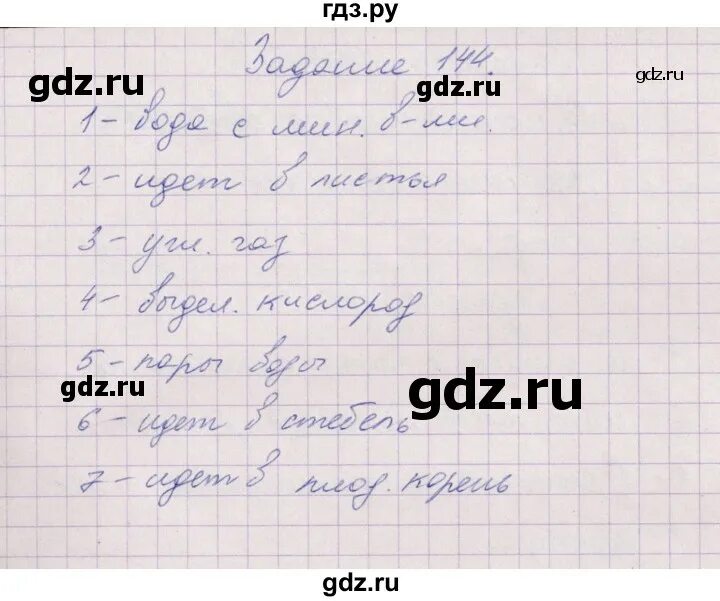 гдз.ру
Задание 144.
gdz.ru
gdz.ru
gdz.ru
1 - вода с мин. в-ми.
2 - идет в листья
3 - угл. газ
4 - выдел. кислород
5 - пары воды
gdz.ru
gdz.ru
6 - идет в стебель
7 - идет в плод. корень
gdz.ru